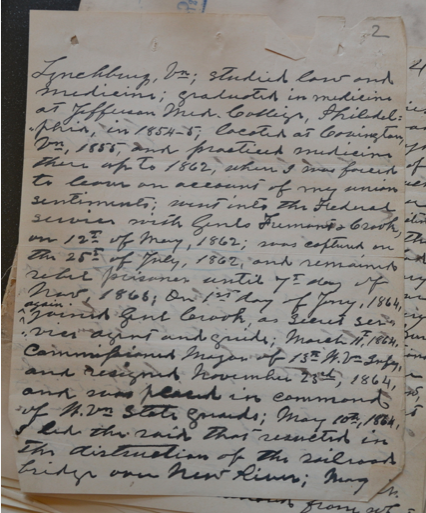 2
Lynchburg, Va; studied law and
medicine; graduated in medicine
at Jefferson Med. College, Philadel-
phia, in 1854-5; located at Covington,
Va, 1855, and practiced medicine
there up to 1862, when I was forced
to leave on account of my union
sentiments; went into the Federal
service with Genls Fremont & Crook,
on 12th of May, 1862; was captured on
the 25th of July, 1862, and remained
rebel prisoner until 7th day of
Nov. 1863; On 1st day of Jany, 1864,
again joined Genl Crook, as secret ser-
vice agent and guide; March 11th 1864,
Commissioned Major of 13th W. Va Infy,
and resigned November 23rd, 1864,
and was placed in command
of W. Va State guards; May 10th, 1864,
I led the raid that resulted in
the distruction of the railroad
bridge over New River; May